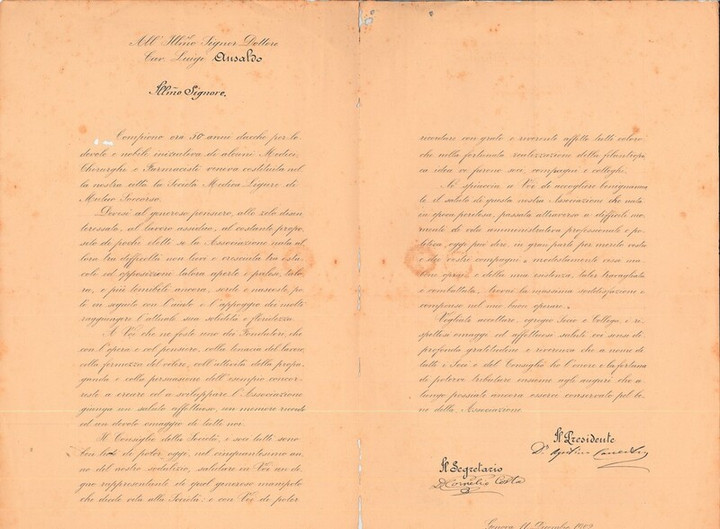 All' Illmo Signor Dottore
Cav. Luigi Ansaldo
Illmo Signore,
Compiono ora 50 anni dacchè per lo
devole e nobile iniziativa di alcuni Medici,
Chirurghi e Farmacisti veniva costituita nel
la nostra città la Società Medica Ligure di
Mutuo Soccorso.
Devesi al generoso pensiero, allo zelo disin
teressato, al lavoro assiduo, al costante propo
sito di pochi eletti se la Associazione nata al
lora tra diffidenze non lievi e cresciuta tra osta
coli ed opposizioni talora aperte e palesi, talo
ra, e più temibili ancora, sorde e nascoste, po
tè in seguito con l'aiuto e l'appoggio dei molti
raggiungere l'attuale sua solidità e floridezza.
A Voi che ne foste uno dei Fondatori, che
con l'opera e col pensiero, colla tenacia del lavoro,
colla fermezza del volere, coll'attività della propa
ganda e colla persuasione dell'esempio concor
reste a creare ed a sviluppare l'Associazione
giunga un saluto affettuoso, con memore ricordo
ed un devoto omaggio da tutti noi.
Il Consiglio della Società, e soci tutti sono
lieti di poter, oggi, nel cinquantesimo an
no del nostro sodalizio, salutare in Voi un de
gno rappresentante di quel generoso manipolo
che diede vita alla Società; e con Voi di poter
ricordare con grato e riverente affetto tutti coloro
che nella fortunata realizzazione della filantropi
ca idea vi furono soci, compagni e colleghi.
Vi spiaccia a Voi di accogliere benignamen
te il saluto di questa nostra Associazione che nata
in epoca perigliosa, passata attraverso a difficili mo
menti di vita amministrativa professionale e po
litica, oggi può dire, in gran parte per merito vostro
e dei vostri compagni,
e combattuta, trovi la massima soddisfazione e
compenso nel suo buon operare.
Vogliate accettare, egregio Socio e Collega, i ri
spettosi omaggi ed affettuosi saluti coi sensi di
profonda gratitudine e riverenza che a nome di
tutti i Soci e del Consiglio ho l'onore e la fortuna
di potervi tributare insieme agli auguri che a
lungo possiate ancora essere conservato pel be
ne della Associazione
Il Presidente
Il Segretario
D. Cornelio Costa
Genova 11 Dicembre 1902